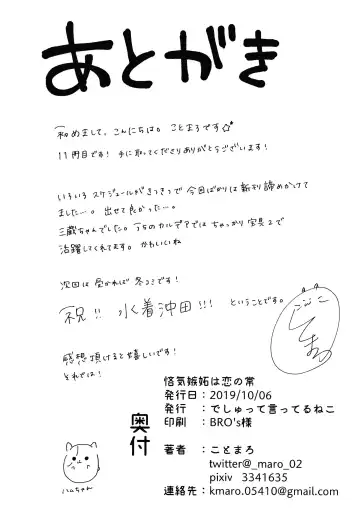 あとがき
初めまして、こんにちは。ことまろです☆
11冊目です！手に取ってくださりありがとうございます！
いろいろスケジュールがきつきつで今回ばかりは新刊諦めかけて
ました…。出せて良かった…。
三蔵ちゃんでした。うちのカルデアではちゃっかり宝具2で
活躍してくれてます。かわいいね
次回は受かれば冬コミです！
「祝!! 水着沖田!!!」ということです。
感想頂けると嬉しいです！
それでは！
ハムちゃん
奥付
悋気嫉妬は恋の常
発行日：2019/10/06
発行　：でしゅって言ってるねこ
印刷　：BRO's様
著者　：ことまろ
twitter@_maro_02
pixiv　3341635
連絡先：kmaro.05410@gmail.com